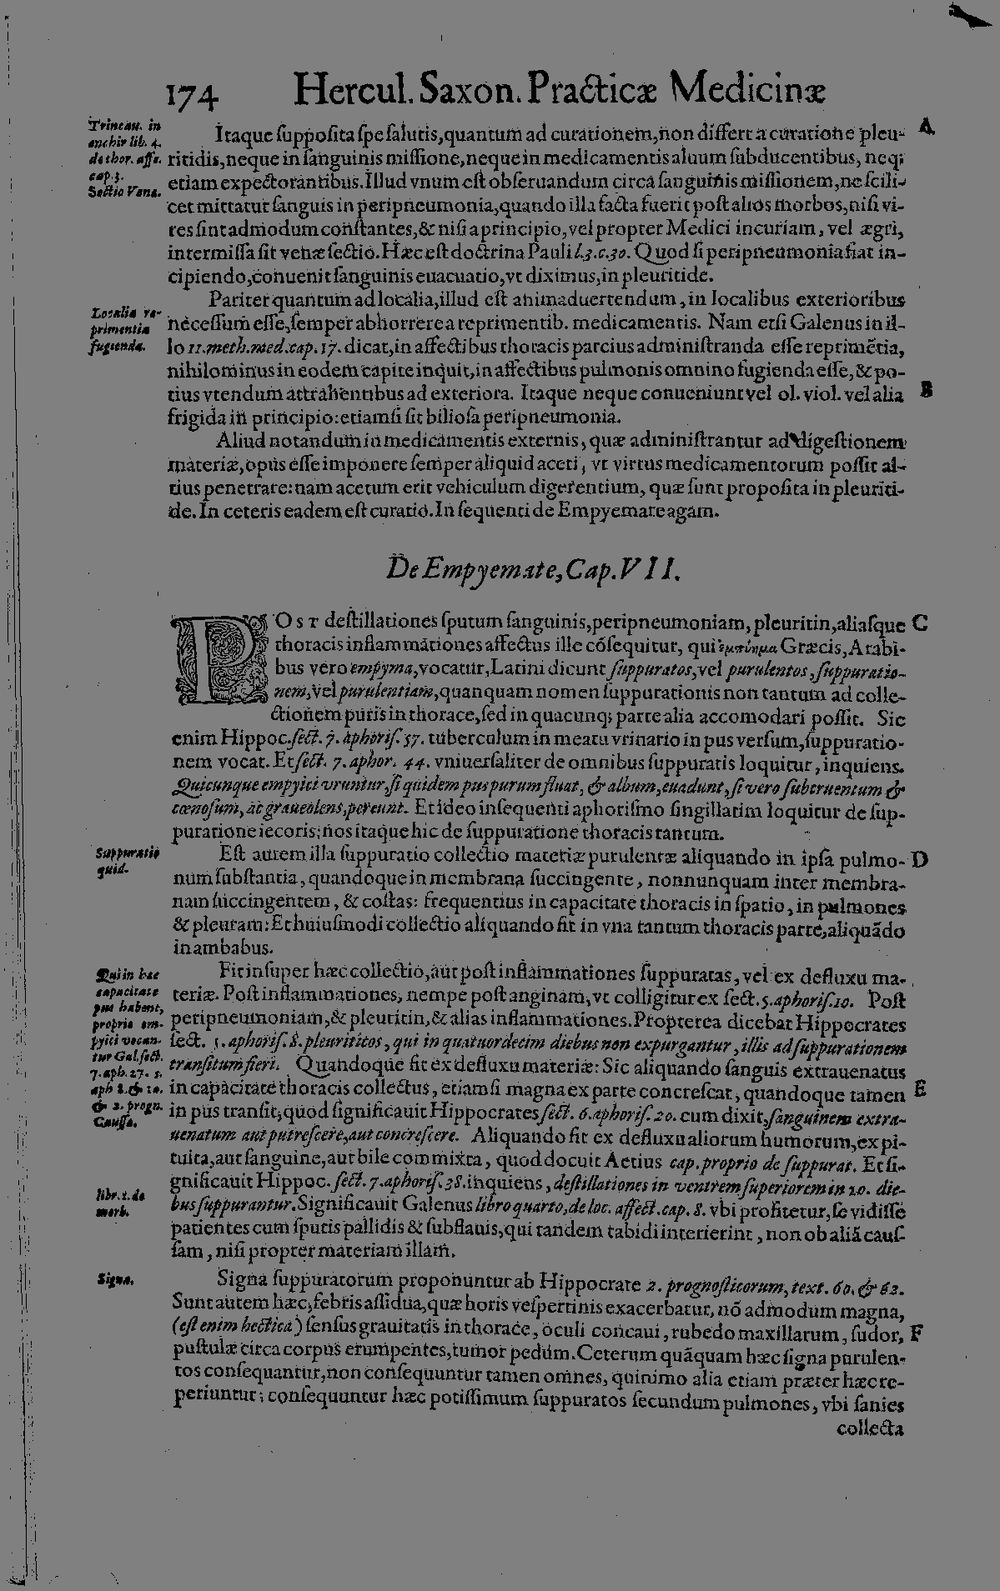 174 Hercul. Saxon. Practicæ Medicinæ
Trincau. in
enchir lib. 4.
de thor. affe.
cap. 3.
Sectio Vena.
Itaque ſuppoſita ſpe ſalutis, quantum ad curationem, non differt a curatione pleu- A
ritidis, neque in ſanguinis miſſione, neque in medicamentis aluum ſubducentibus, neq;
etiam expectorantibus. Illud vnum eſt obſeruandum circa ſanguinis miſſionem, ne ſcili-
cet mittatur ſanguis in peripneumonia, quando illa facta fuerit poſt alios morbos, niſi vi-
res ſint admodum conſtantes, & niſi a principio, vel propter Medici incuriam, vel ægri,
intermiſſa ſit venæ ſectio. Hæc eſt doctrina Pauli l.3.c.30. Quod ſi peripneumonia fiat in-
cipiendo, conuenit ſanguinis euacuatio, vt diximus, in pleuritide.
Localia re-
primentia
fugienda.
Pariter quantum ad localia, illud eſt animaduertendum, in localibus exterioribus
neceſſum eſſe, ſemper abhorrere a reprimentib. medicamentis. Nam etſi Galenus in il-
lo 11.meth.med.cap.17. dicat, in affectibus thoracis parcius adminiſtranda eſſe reprimẽtia,
nihilominus in eodem capite inquit, in affectibus pulmonis omnino fugienda eſſe, & po-
tius vtendum attrahentibus ad exteriora. Itaque neque conueniunt vel ol. viol. vel alia B
frigida in principio: etiamſi ſit bilioſa peripneumonia.
Aliud notandum in medicamentis externis, quæ adminiſtrantur ad digeſtionem
materiæ, opus eſſe imponere ſemper aliquid aceti, vt virtus medicamentorum poſſit al-
tius penetrare: nam acetum erit vehiculum digerentium, quæ ſunt propoſita in pleuriti-
de. In ceteris eadem eſt curatio. In ſequenti de Empyemate agam.
De Empyemate, Cap. VII.
POST deſtillationes ſputum ſanguinis, peripneumoniam, pleuritin, aliaſque C
thoracis inflammationes affectus ille cõſequitur, qui ἐμπύημα Græcis, Arabi-
bus vero empyma, vocatur, Latini dicunt ſuppuratos, vel purulentos, ſuppuratio-
nem, vel purulentiam, quanquam nomen ſuppurationis non tantum ad colle-
ctionem puris in thorace, ſed in quacunq; parte alia accomodari poſſit. Sic
enim Hippoc. ſect. 7. aphoriſ. 57. tuberculum in meatu vrinario in pus verſum, ſuppuratio-
nem vocat. Et ſect. 7. aphor. 44. vniuerſaliter de omnibus ſuppuratis loquitur, inquiens.
Quicunque empyici vruntur, ſi quidem pus purum fluat, & album, euadunt, ſi vero ſubcruentum &
cœnoſum, ac graueolens, pereunt. Et ideo inſequenti aphoriſmo ſingillatim loquitur de ſup-
puratione iecoris; nos itaque hic de ſuppuratione thoracis tantum.
Suppuratio
quid.
Eſt autem illa ſuppuratio collectio materiæ purulentæ aliquando in ipſa pulmo- D
num ſubſtantia, quandoque in membrana ſuccingente, nonnunquam inter membra-
nam ſuccingentem, & coſtas: frequentius in capacitate thoracis in ſpatio, in pulmones
& pleuram: Et huiuſmodi collectio aliquando fit in vna tantum thoracis parte, aliquãdo
in ambabus.
Qui in hac
capacitate
pus habent,
proprie em-
pyici vocan-
tur Gal. ſect.
7. aph. 27. 5.
aph 8. & 10.
& 2. progn.
Cauſſa.
Fit inſuper hæc collectio, aut poſt inflammationes ſuppuratas, vel ex defluxu ma-
teriæ. Poſt inflammationes, nempe poſt anginam, vt colligitur ex ſect. 5. aphoriſ. 10. Poſt
peripneumoniam, & pleuritin, & alias inflammationes. Propterea dicebat Hippocrates
ſect. 5. aphoriſ. 8. pleurititos, qui in quatuordecim diebus non expurgantur, illis ad ſuppurationem
tranſitum fieri. Quandoque fit ex defluxu materiæ: Sic aliquando ſanguis extrauenatus
in capacitate thoracis collectus, etiamſi magna ex parte concreſcat, quandoque tamen E
in pus tranſit, quod ſignificauit Hippocrates ſect. 6. aphoriſ. 20. cum dixit, ſanguinem extra-
uenatum aut putreſcere, aut concreſcere. Aliquando fit ex defluxu aliorum humorum, ex pi-
tuita, aut ſanguine, aut bile commixta, quod docuit Aetius cap. proprio de ſuppurat. Et ſi-
gnificauit Hippoc. ſect. 7. aphoriſ. 38. inquiens, deſtillationes in ventrem ſuperiorem in 20. die-
libr. 1. de
morb.
bus ſuppurantur. Significauit Galenus libro quarto, de loc. affect. cap. 8. vbi profitetur, ſe vidiſſe
patientes cum ſputis pallidis & ſubflauis, qui tandem tabidi interierint, non ob aliã cauſ-
ſam, niſi propter materiam illam.
Signa.
Signa ſuppuratorum proponuntur ab Hippocrate 2. prognoſticorum, text. 60. & 62.
Sunt autem hæc, febris aſſidua, quæ horis veſpertinis exacerbatur, nõ admodum magna,
(eſt enim hectica) ſenſus grauitatis in thorace, oculi concaui, rubedo maxillarum, ſudor, F
puſtulæ circa corpus erumpentes, tumor pedum. Ceterum quãquam hæc ſigna purulen-
tos conſequantur, non conſequuntur tamen omnes, quinimo alia etiam præter hæc re-
periuntur; conſequuntur hæc potiſſimum ſuppuratos ſecundum pulmones, vbi ſanies
collecta